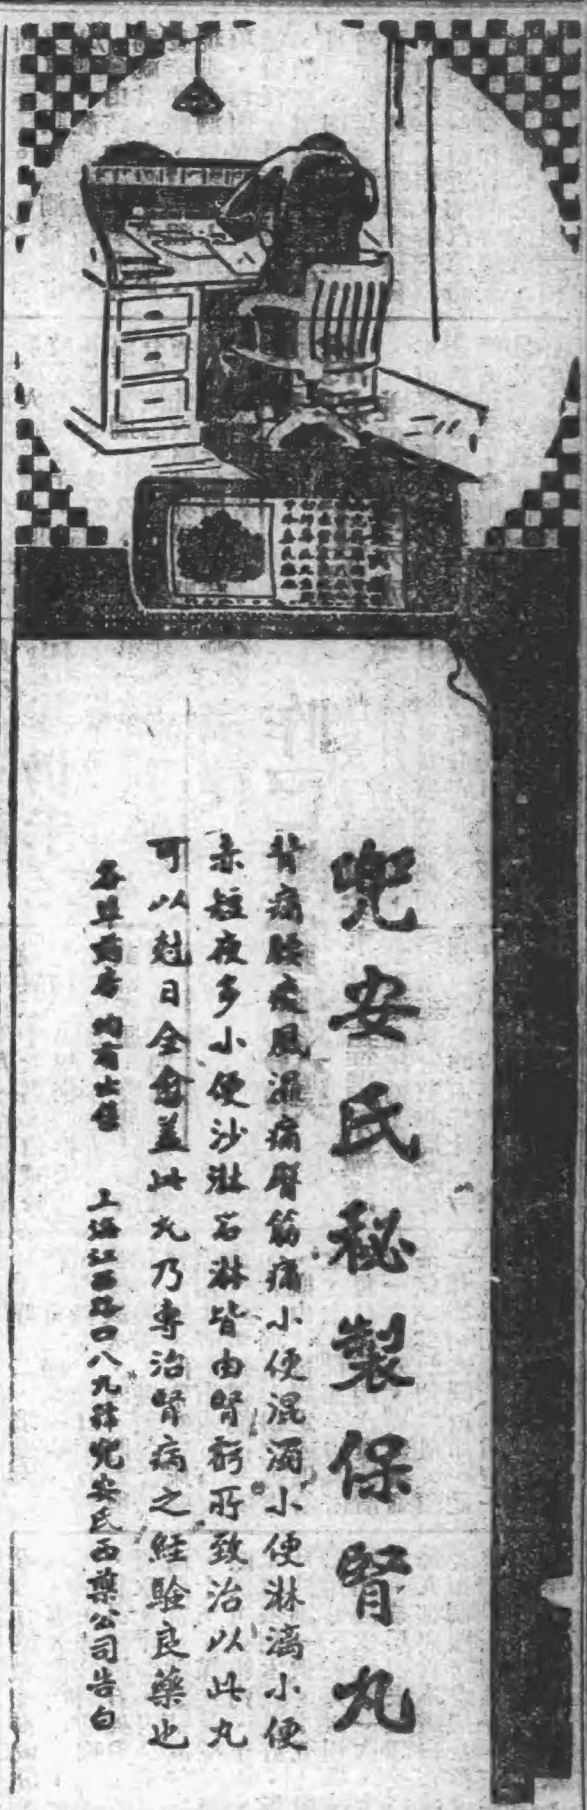 兜安氏秘製保腎丸
背痛腰疼風濕痛臂筋痛小便混濁小便淋漓小便
赤短夜多小便沙淋石淋皆由腎虧所致治以此丸
可以尅日全愈蓋此丸乃專治腎病之經驗良藥也
各埠藥房均有出售 上海江西路口八九號兜安氏西藥公司告白